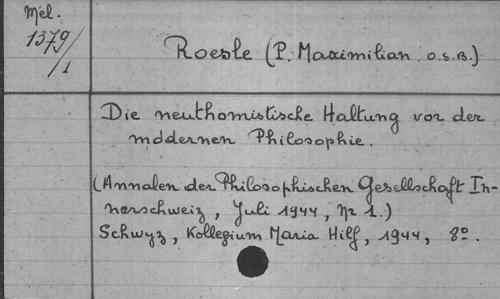 Mél.
1379/1
Roesle (P. Maximilian O.S.B.)
Die neuthomistische Haltung vor der
modernen Philosophie.
(Annalen der Philosophischen Gesellschaft In-
nerschweiz, Juli 1944, Nr 1.)
Schwyz, Kollegium Maria Hilf, 1944, 8º.